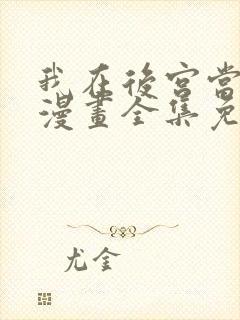 我在後宮當
漫畫全集免
尤金